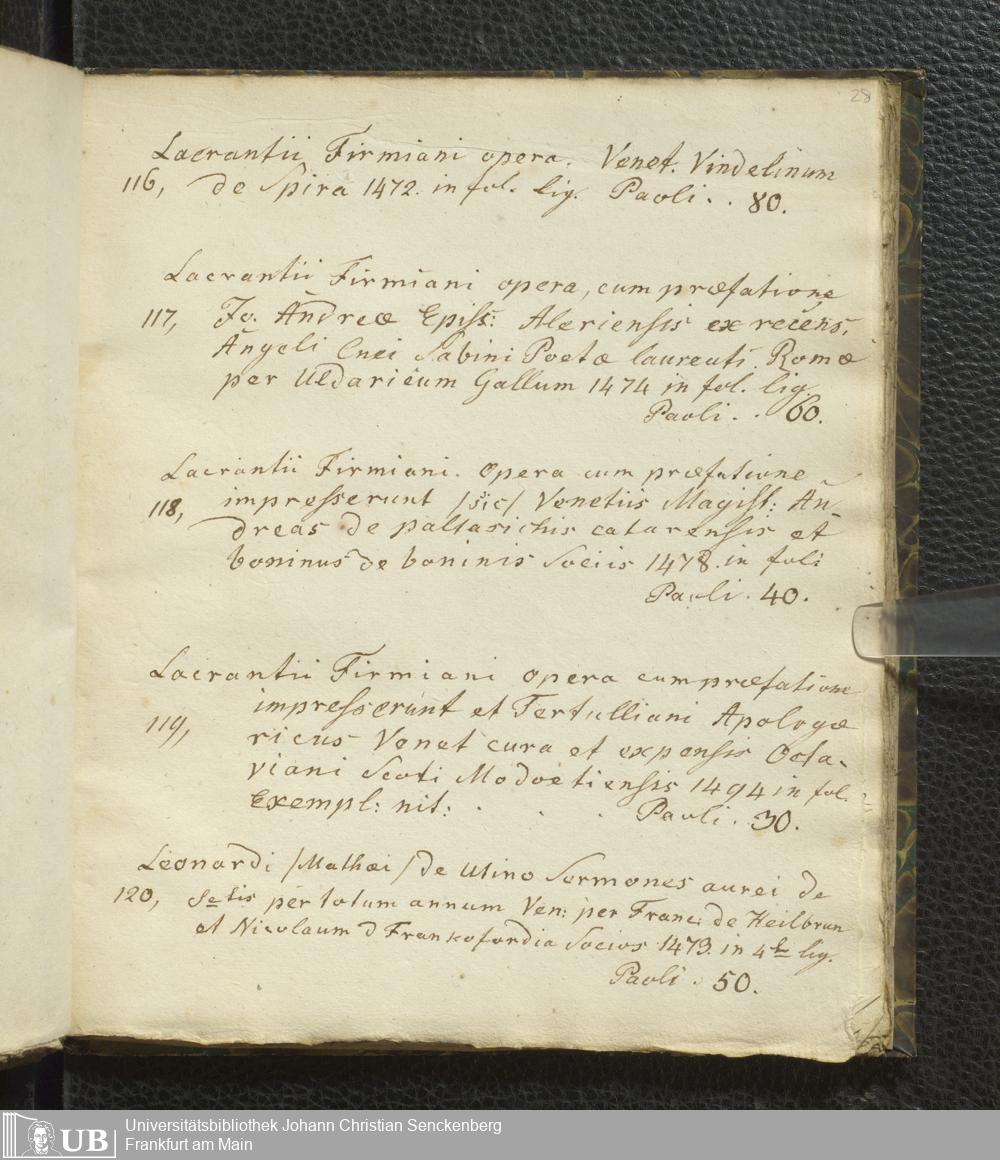 28
Lacrantii Firmiani opera. Venet. Vindelinum
116, de Spira 1472. in fol. lig. Paoli . . 80.
Lacrantii Firmiani opera, cum præfatione
117, Jo. Andreæ Episs: Aleriensis ex recens.
Angeli Cnei Sabini Poetæ laureati. Romæ
per Uldaricum Gallum 1474 in fol. lig.
Paoli . . 60.
Lacrantii Firmiani. Opera cum præfatione
118, impresserunt /sic/ Venetiis Magist: An-
dreas de paltasichis catarensis et
boninus de boninis Sociis 1478. in fol:
Paoli . 40.
Lacrantii Firmiani opera cum præfatione
impresserunt et Tertulliani Apologæ
119, ricus Venet cura et expensis Octa-
viani Scoti Modoetiensis 1494 in fol.
Exempl: nit: . . . Paoli . 30.
Leonardi /Mathæi/ de Utino Sermones aurei de
120, Sctis per totum annum Ven: per Franc: de Heilbrun
et Nicolaum d Frankofordia Socios 1473. in 4to lig.
Paoli . 50.
UB
Universitätsbibliothek Johann Christian Senckenberg
Frankfurt am Main